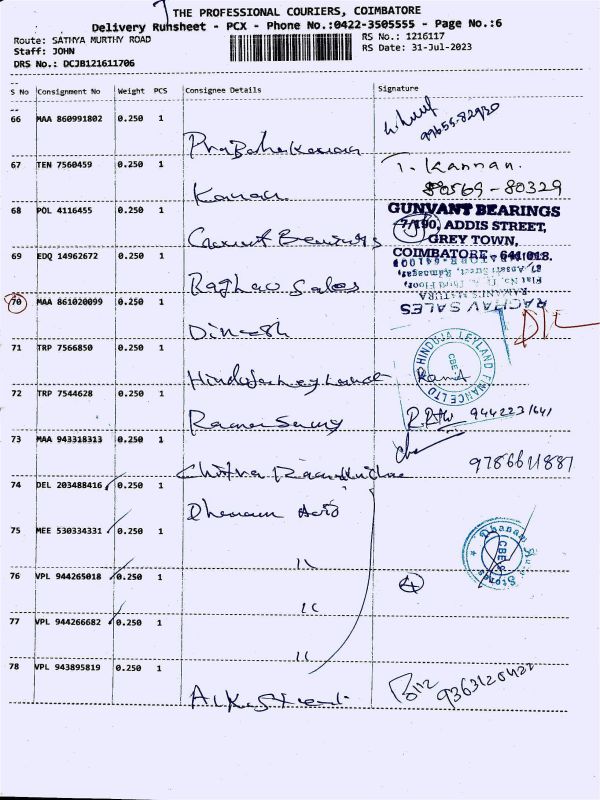 THE PROFESSIONAL COURIERS, COIMBATORE
Delivery Runsheet - PCX - Phone No.:0422-3505555 - Page No.:6
Route: SATHYA MURTHY ROAD
Staff: JOHN
DRS No.: DCJB121611706
RS No.: 1216117
RS Date: 31-Jul-2023
S No Consignment No Weight PCS Consignee Details Signature
66 MAA 860991802 0.250 1
99655-82920
Prabahakaran
67 TEN 7560459 0.250 1 T. Kannan.
Kanan 89569-80329
68 POL 4116455 0.250 1
GUNVANT BEARINGS
7/190, ADDIS STREET,
GREY TOWN,
COIMBATORE - 641 018.
69 EDQ 14962672 0.250 1
Raghav Sales
RAGHAV SALES
70 MAA 861020099 0.250 1
Dinesh
71 TRP 7566850 0.250 1
HINDUJA LEYLAND FINANCE LTD
CBE
Hinduja Leyland
72 TRP 7544628 0.250 1
Ramasamy 9442231641
73 MAA 943318313 0.250 1
Chitra 9786611887
74 DEL 203488416 0.250 1
Dhanam Auto
75 MEE 530334331 0.250 1
Dhanam Auto Stores
CBE
"
76 VPL 944265018 0.250 1 4
"
77 VPL 944266682 0.250 1
"
78 VPL 943895819 0.250 1
9363120422